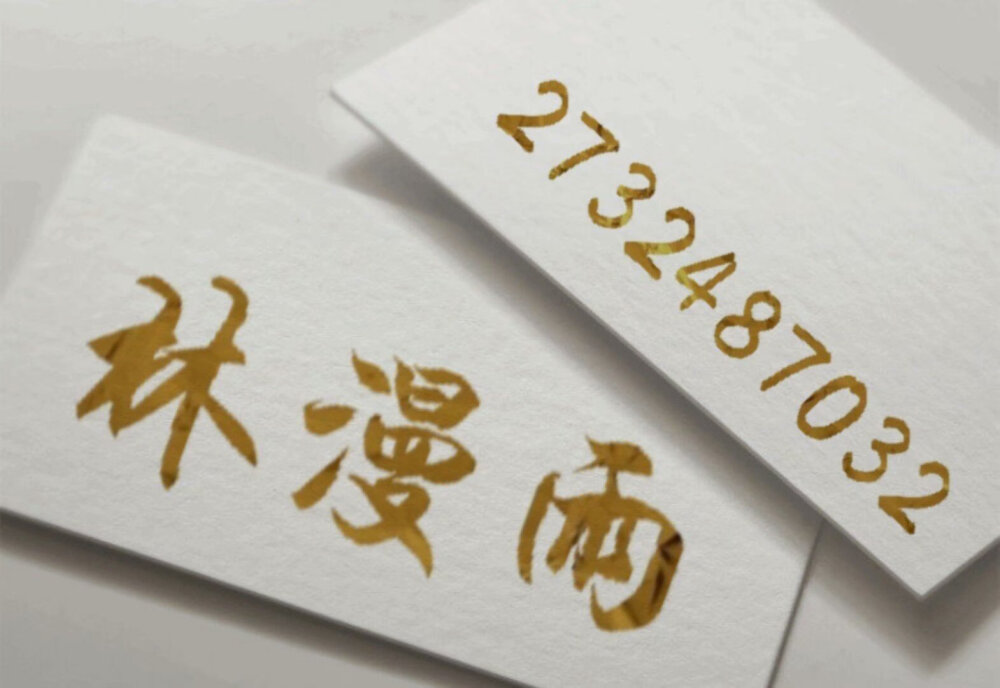 林漫雨
2732487032